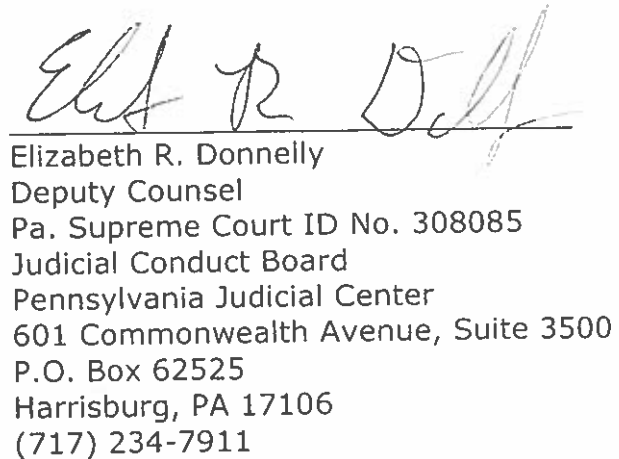 Elizabeth R. Donnelly
Deputy Counsel
Pa. Supreme Court ID No. 308085
Judicial Conduct Board
Pennsylvania Judicial Center
601 Commonwealth Avenue, Suite 3500
P.O. Box 62525
Harrisburg, PA 17106
(717) 234-7911